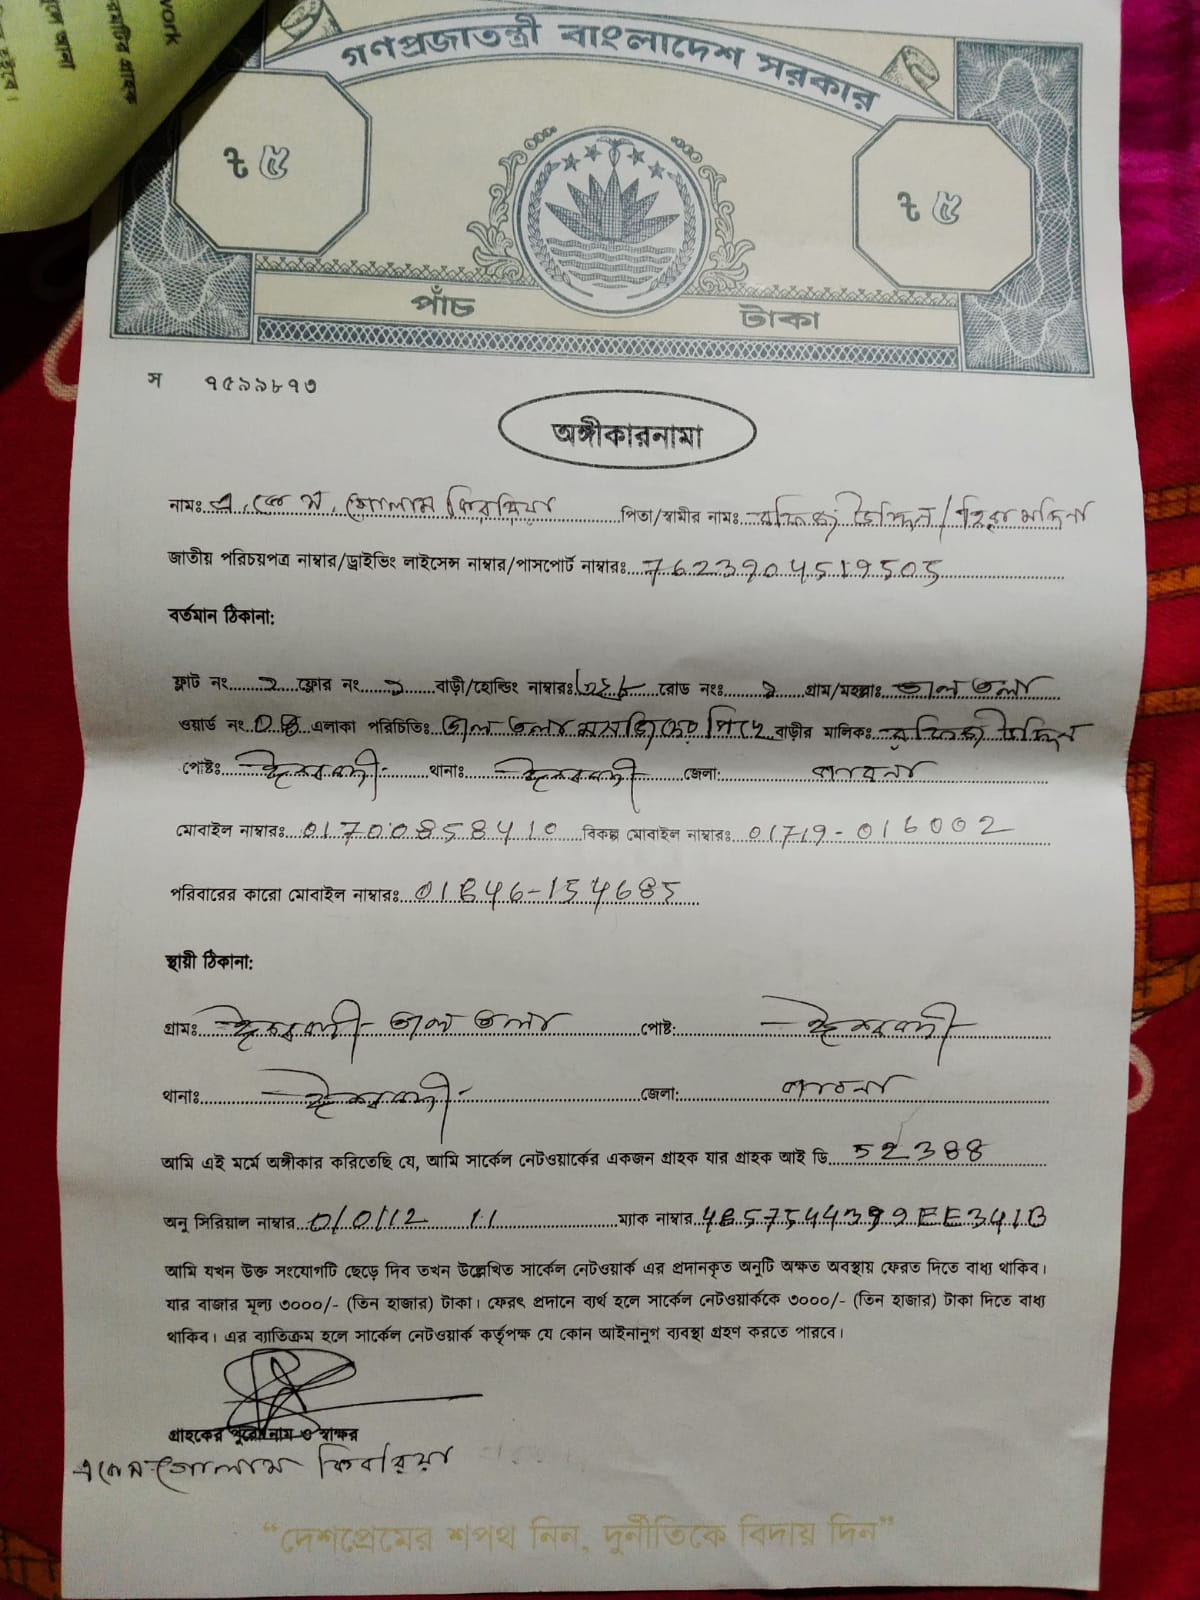 work
গণপ্রজাতন্ত্রী বাংলাদেশ সরকার
৳ ৫ ৳ ৫
পাঁচ টাকা
স ৭৫৯৯৮৭৩
অঙ্গীকারনামা
নামঃ এ, কে ম, গোলাম কিবরিয়া পিতা/স্বামীর নামঃ রফিজ উদ্দিন/
জাতীয় পরিচয়পত্র নাম্বার/ড্রাইভিং লাইসেন্স নাম্বার/পাসপোর্ট নাম্বারঃ 7623904519505
বর্তমান ঠিকানা:
ফ্লাট নং ২ ফ্লোর নং ১ বাড়ী/হোল্ডিং নাম্বারঃ রোড নংঃ গ্রাম/মহল্লাঃ তালতলা
ওয়ার্ড নং 04 এলাকা পরিচিতিঃ তালতলা মসজিদের পিছে বাড়ীর মালিকঃ রফিজ উদ্দিন
পোষ্টঃ ঈশ্বরদী থানাঃ ঈশ্বরদী জেলা: পাবনা
মোবাইল নাম্বারঃ বিকল্প মোবাইল নাম্বারঃ 01719-016002
পরিবারের কারো মোবাইল নাম্বারঃ
স্থায়ী ঠিকানা:
গ্রামঃ ঈশ্বরদী তালতলা পোষ্ট: ঈশ্বরদী
থানাঃ ঈশ্বরদী জেলা: পাবনা
আমি এই মর্মে অঙ্গীকার করিতেছি যে, আমি সার্কেল নেটওয়ার্কের একজন গ্রাহক যার গ্রাহক আই ডি 52388
অনু সিরিয়াল নাম্বার 0/0/12 11 ম্যাক নাম্বার
আমি যখন উক্ত সংযোগটি ছেড়ে দিব তখন উল্লেখিত সার্কেল নেটওয়ার্ক এর প্রদানকৃত অনুটি অক্ষত অবস্থায় ফেরত দিতে বাধ্য থাকিব।
যার বাজার মূল্য ৩০০০/- (তিন হাজার) টাকা। ফেরৎ প্রদানে ব্যর্থ হলে সার্কেল নেটওয়ার্ককে ৩০০০/- (তিন হাজার) টাকা দিতে বাধ্য
থাকিব। এর ব্যাতিক্রম হলে সার্কেল নেটওয়ার্ক কর্তৃপক্ষ যে কোন আইনানুগ ব্যবস্থা গ্রহণ করতে পারবে।
গ্রাহকের পুরো নাম ও স্বাক্ষর
একেম গোলাম কিবরিয়া
“দেশপ্রেমের শপথ নিন, দুর্নীতিকে বিদায় দিন”